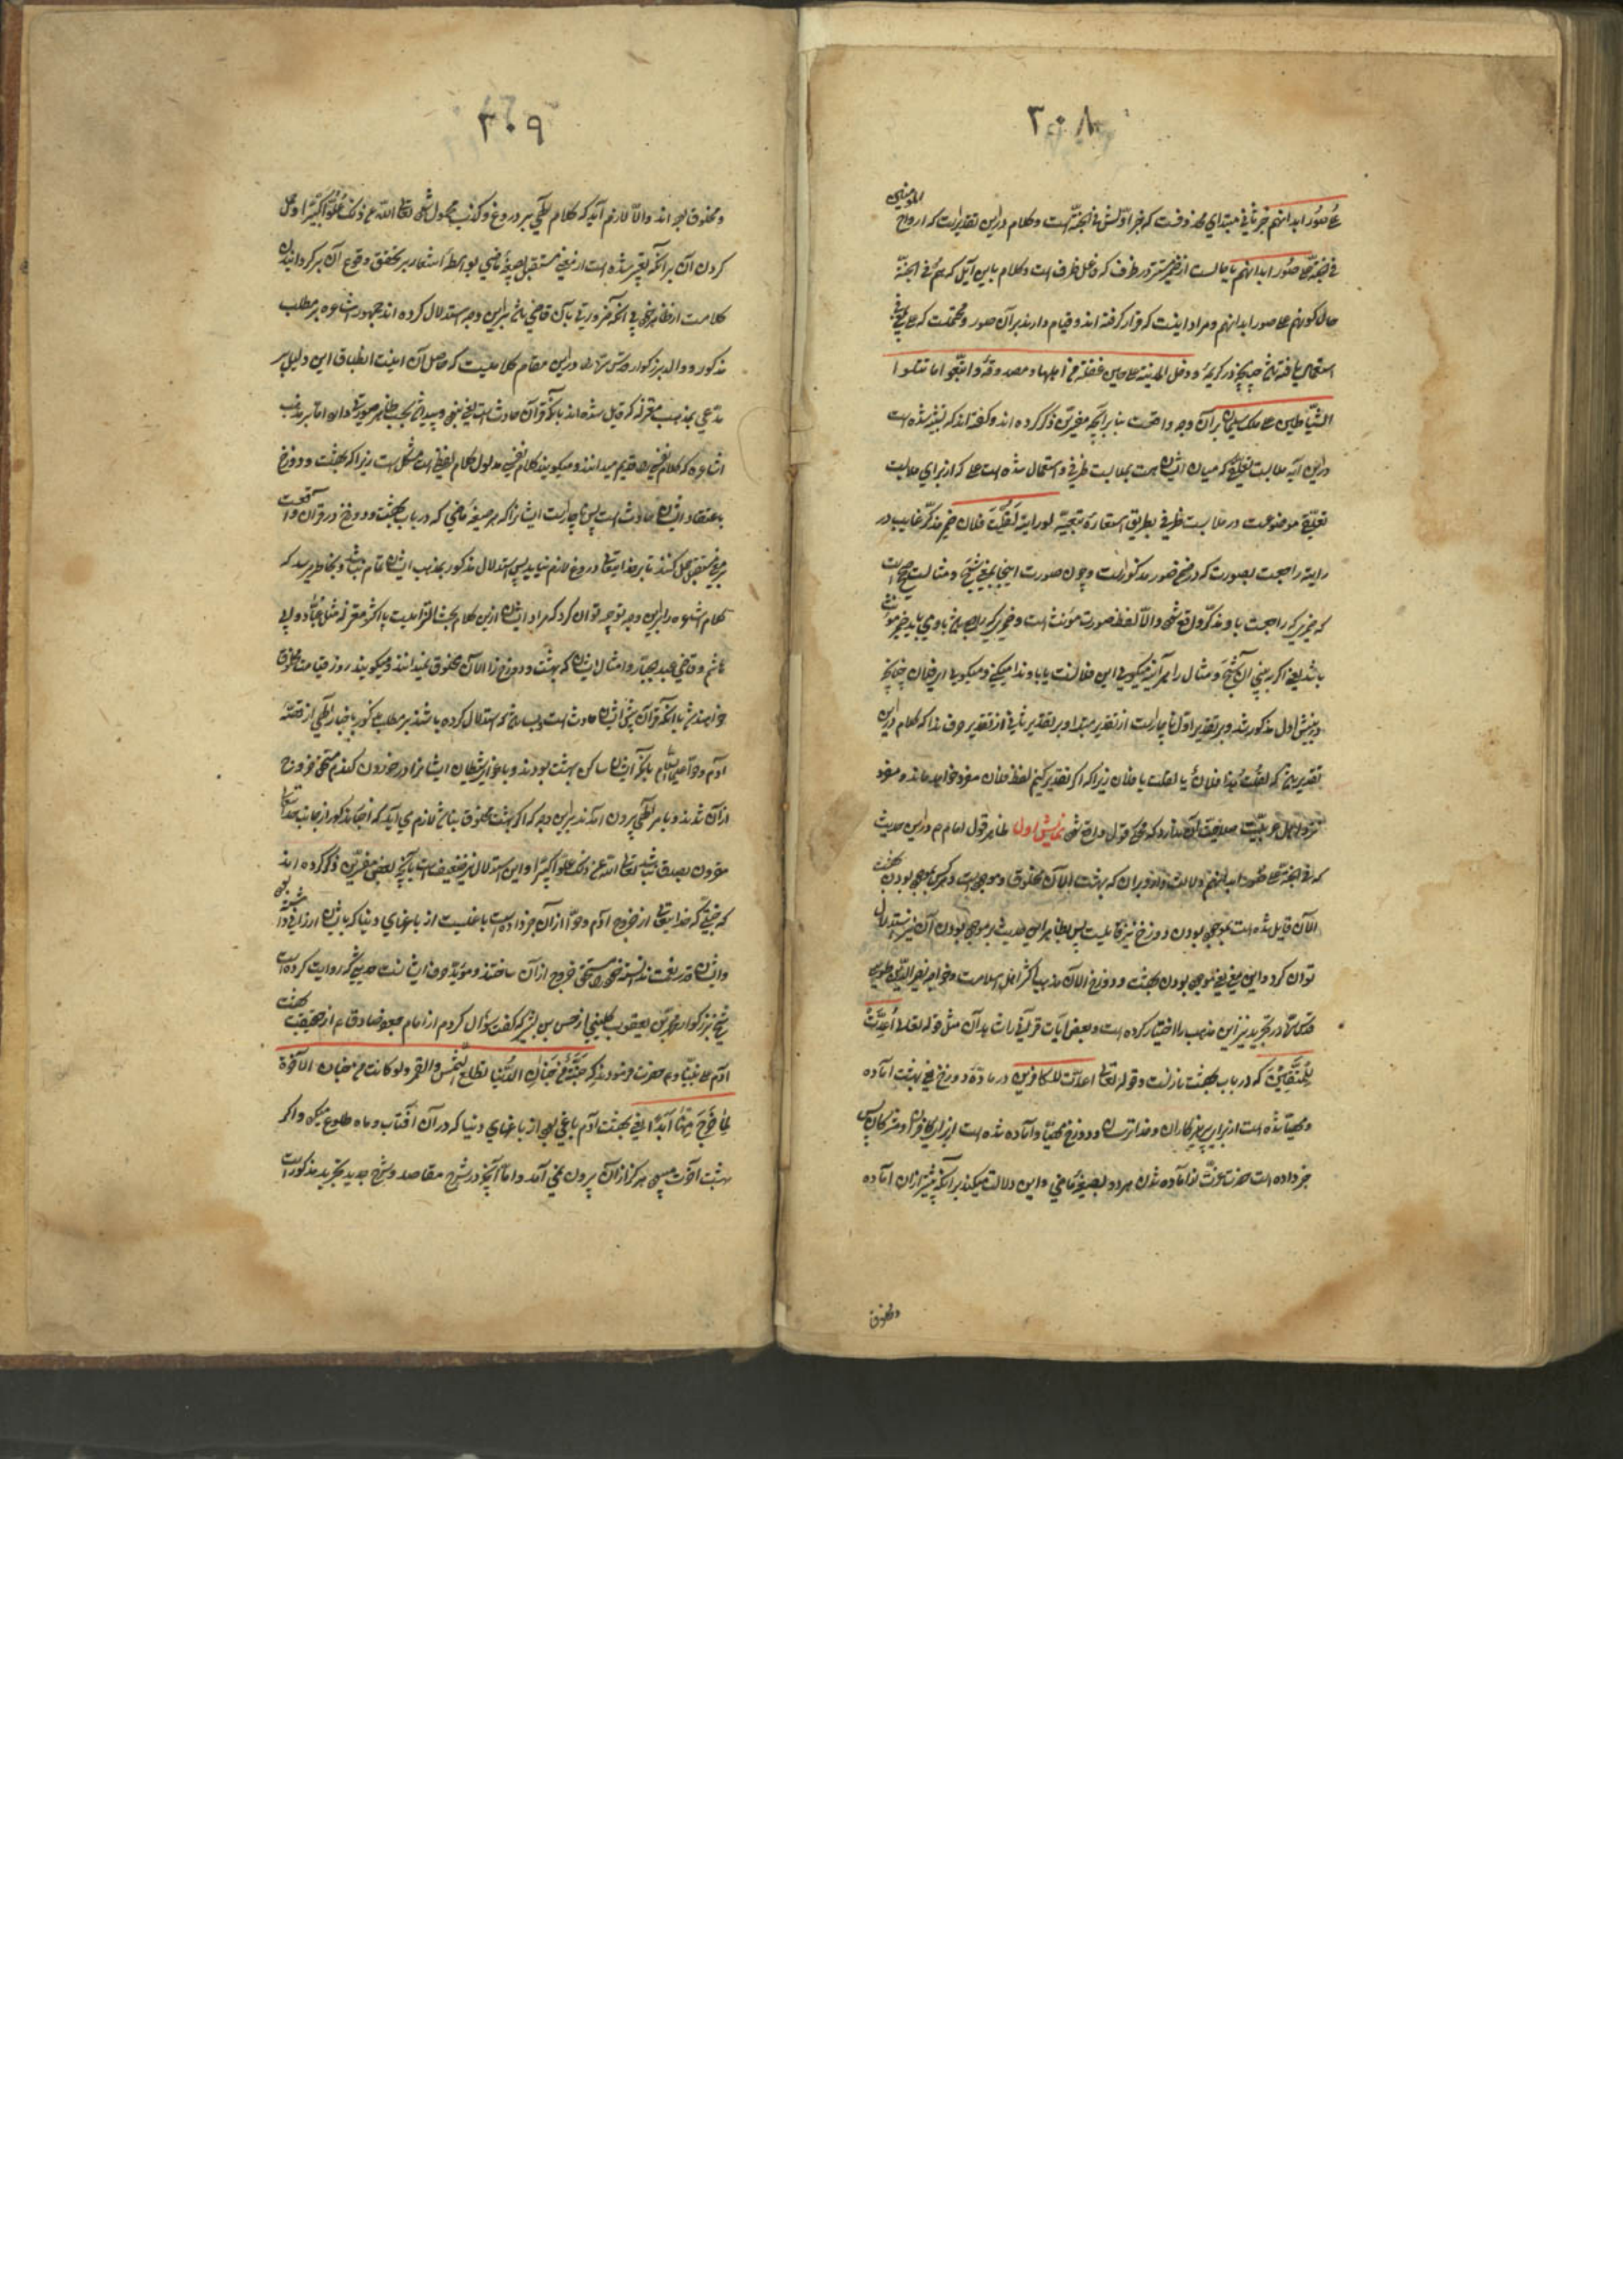 ۳۰۸
المؤمنین
علی صور ابدانهم خبر ثانی مبتدای محذوفست که خبر اولش فی الجنة است و کلام در این تقدیر است که ارواح
فی الجنة علی صور ابدانهم یا حالست از ضمیر مستتر در ظرف که و کلام باین آیل که هم فی الجنة
حال کونهم علی صور ابدانهم و مراد اینست که قرار گرفته اند و قیام دارند بر آن صور و محتملست که علی بمعنی فی
استعمال یافته باشد چنانچه در کریمه و دخل المدینة علی حین غفلة من اهلها و مصدوقه و اتبعوا ما تتلوا
الشیاطین علی ملک سلیمان بر آن وجه واقعست بنا بر آنچه مفسرین ذکر کرده اند و گفته اند که تشبیه شده است
در این آیه ملابست که میان ایشان است بملابست ظرفی و استعمال شده است علی که از برای ملابست
موضوعست در ملابست ظرفی بطریق استعاره تبعیه لو رایته لقلت فلان ضمیر مذکر غایب در
رایته راجعست بصورت که در ضمن صور مذکور است و چون صورت اینجا بمعنی شبح و مثالست صحیح است
که ضمیری که راجعست باو مذکر واقع شود و الا لفظ صورت مؤنث است و ضمیری که راجع باوی باید ضمیر مؤنث
باشد یعنی اگر ببینی آن شبح و مثال را هر آینه میگویی این فلانست یا باو ندا میکنی و میگویی ای فلان چنانچه
در پیش اول مذکور شد و بر تقدیر اول ناچار است از تقدیر مبتدا و بر تقدیر ثانی از تقدیر حرف ندا که کلام در این
تقدیر که لقلت هذا فلان یا لقلت یا فلان زیرا که اگر تقدیر نکنیم لفظ فلان مفرد خواهد ماند و مفرد
نزد اهل عربیت صلاحیت آن ندارد که مقول قول واقع شود نمایش اول ظاهر قول امام م در این حدیث
که فی الجنة علی صور ابدانهم دلالت دارد بر آن که بهشت الآن مخلوق و موجود است و هر کس بموجود بودن بهشت
الآن قایل شده است بموجود بودن دوزخ نیز قایلست پس بظاهر این حدیث بر موجود بودن آن نیز استدلال
توان کرد و این معنی یعنی موجود بودن بهشت و دوزخ الآن مذهب اکثر اهل اسلامست و خواجه نصیر الدین طوسی
قدس سره در تجرید نیز این مذهب را اختیار کرده است و بعض آیات قرآنی دال بر آن مثل قوله تعالی اعدت
للمتقین که در باب بهشت نازلست و قوله تعالی اعدت للکافرین در ماده دوزخ یعنی بهشت آماده
و مهیا شده است از برای پرهیزکاران و خدا ترسان و دوزخ مهیا و آماده شده است از برای کافران و مشرکان پس
خبر داده است حضرت عزت از آماده شدن هر دو بصیغه ماضی و این دلالت میکند بر آنکه پیشتر از آن آماده
و مخلوق
۳۰۹
و مخلوق بوده اند و الا لازم آید که کلام الهی بر دروغ و کذب محمول شود تعالی الله عن ذلک علوا کبیرا و حمل
کردن آن بر آنکه تعبیر شده است از معنی مستقبل بصیغه ماضی بواسطه اشعار بر تحقق وقوع آن برگردانیدن
کلامست از ظاهر خود بی آنکه ضرورتی بآن قاضی باشد بر این وجه استدلال کرده اند جمهور اشاعره بر مطلب
مذکور و والد بزرگوار قدس سره را در این مقام کلامیست که حاصل آن اینست انطباق این دلیل بر
مدعی بمذهب معتزله که قایل شده اند بآنکه قرآن حادث است یعنی نبود و پیدا شد بحسب ظاهر صورتی دارد اما بر مذهب
اشاعره که کلام نفسی را قدیم میدانند و میگویند کلام نفسی مدلول کلام لفظی است مشکل است زیرا که بهشت و دوزخ
باعتقاد ایشان حادث است پس ناچار است ایشانرا که هر صیغه ماضی که در باب بهشت و دوزخ در قرآن واقعست
بر معنی مستقبل حمل کنند تا بر خدایتعالی دروغ لازم نیاید پس استدلال مذکور بمذهب ایشان تمام نباشد و بخاطر میرسد که
کلام اشاعره را بر این وجه توجیه توان کرد که مراد ایشان ازین کلام بحث الزامیست با اکثر معتزله مثل عباد و ابی
هاشم و قاضی عبد الجبار و امثال ایشان که بهشت و دوزخ را الآن مخلوق نمیدانند و میگویند روز قیامت مخلوق
خواهند شد با آنکه قرآن پیش ایشان حادث است و بعضی استدلال کرده باشند بر مطلب مذکور باخبار الهی از قصه
آدم و حوا علیهما السلام بآنکه ایشان ساکن بهشت بودند و باغوای شیطان ایشانرا در خوردن گندم مستحق خروج
از آن شدند و بامر الهی بیرون آمدند بر این وجه که اگر بهشت مخلوق نباشد لازم می آید که اخبار مذکور از جانب خدایتعالی
مقرون بصدق نباشد تعالی الله عن ذلک علوا کبیرا و این استدلال نیز ضعیف است بآنچه بعضی مفسرین ذکر کرده اند
که جنتی که خدایتعالی از خروج آدم و حوا از آن خبر داده است باغیست از باغهای دنیا که بایشان ارزانی داشته بود
و ایشان قدر نعمت ندانسته خود را مستحق خروج از آن ساختند و مؤید حرف ایشانست حدیثی که روایت کرده است
شیخ بزرگوار محمد بن یعقوب کلینی از حسن بن بشیر که گفت سؤال کردم از امام جعفر صادق ع از حقیقت بهشت
آدم علی نبینا و ع حضرت فرمودند که جنة من جنان الدنیا تطلع الشمس والقمر ولو کانت من جنان الآخرة
لما خرج منها ابدا یعنی بهشت آدم باغی بود از باغهای دنیا که در آن آفتاب و ماه طلوع میکرد و اگر
بهشت آخرت میبود هرگز از آن بیرون نمی آمد و اما آنچه در شرح مقاصد و شرح جدید تجرید مذکور است